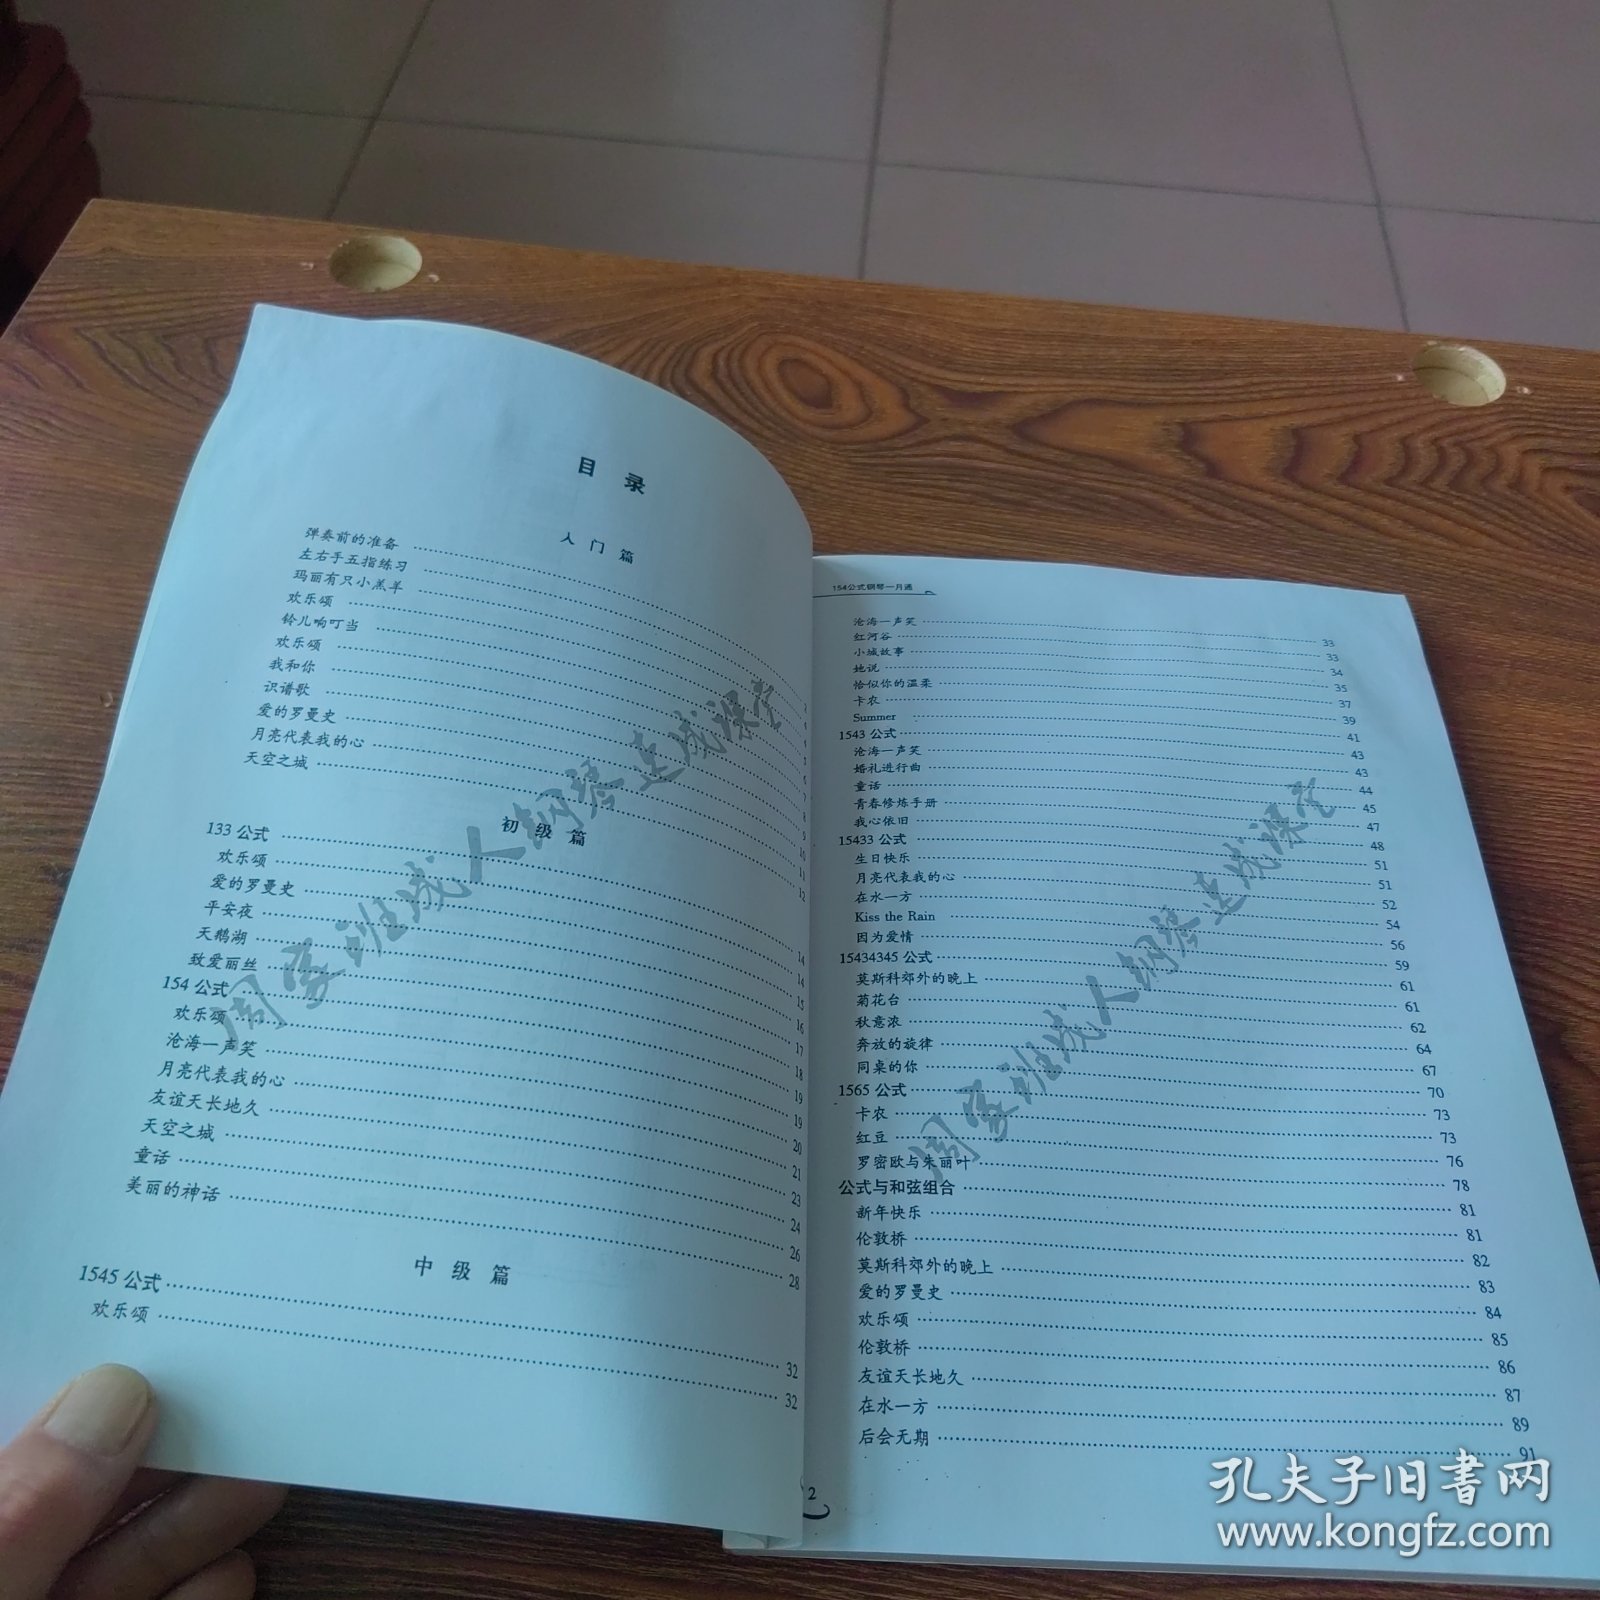 目 录
人 门 篇
弹奏前的准备
左右手五指练习
玛丽有只小羔羊
欢乐颂
铃儿响叮当
欢乐颂
我和你
识谱歌
爱的罗曼史
月亮代表我的心
天空之城
初 级 篇
133 公式
欢乐颂
爱的罗曼史
平安夜
天鹅湖
致爱丽丝
154 公式
欢乐颂
沧海一声笑
月亮代表我的心
友谊天长地久
天空之城
童话
美丽的神话
中 级 篇
1545 公式 32
欢乐颂 32
154公式钢琴一月通
沧海一声笑 33
红河谷 33
小城故事 34
她说 35
恰似你的温柔 37
卡农 39
Summer 41
1543 公式 43
沧海一声笑 43
婚礼进行曲 44
童话 45
青春修炼手册 47
我心依旧 48
15433 公式 51
生日快乐 51
月亮代表我的心 52
在水一方 54
Kiss the Rain 56
因为爱情 59
15434345 公式 61
莫斯科郊外的晚上 61
菊花台 62
秋意浓 64
奔放的旋律 67
同桌的你 70
1565 公式 73
卡农 73
红豆 76
罗密欧与朱丽叶 78
公式与和弦组合 81
新年快乐 81
伦敦桥 82
莫斯科郊外的晚上 83
爱的罗曼史 84
欢乐颂 85
伦敦桥 86
友谊天长地久 87
在水一方 89
后会无期 91
2
周家班成人钢琴速成课堂
周家班成人钢琴速成课堂
孔夫子旧书网
www.kongfz.com